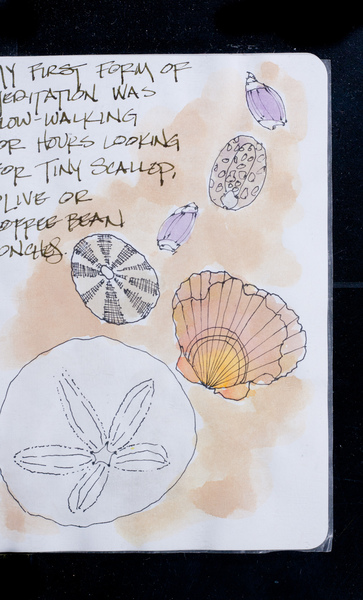 MY FIRST FORM OF
MEDITATION WAS
LOW-WALKING
OR HOURS LOOKING
FOR TINY SCALLOP,
OLIVE OR
COFFEE BEAN
ONCHES.